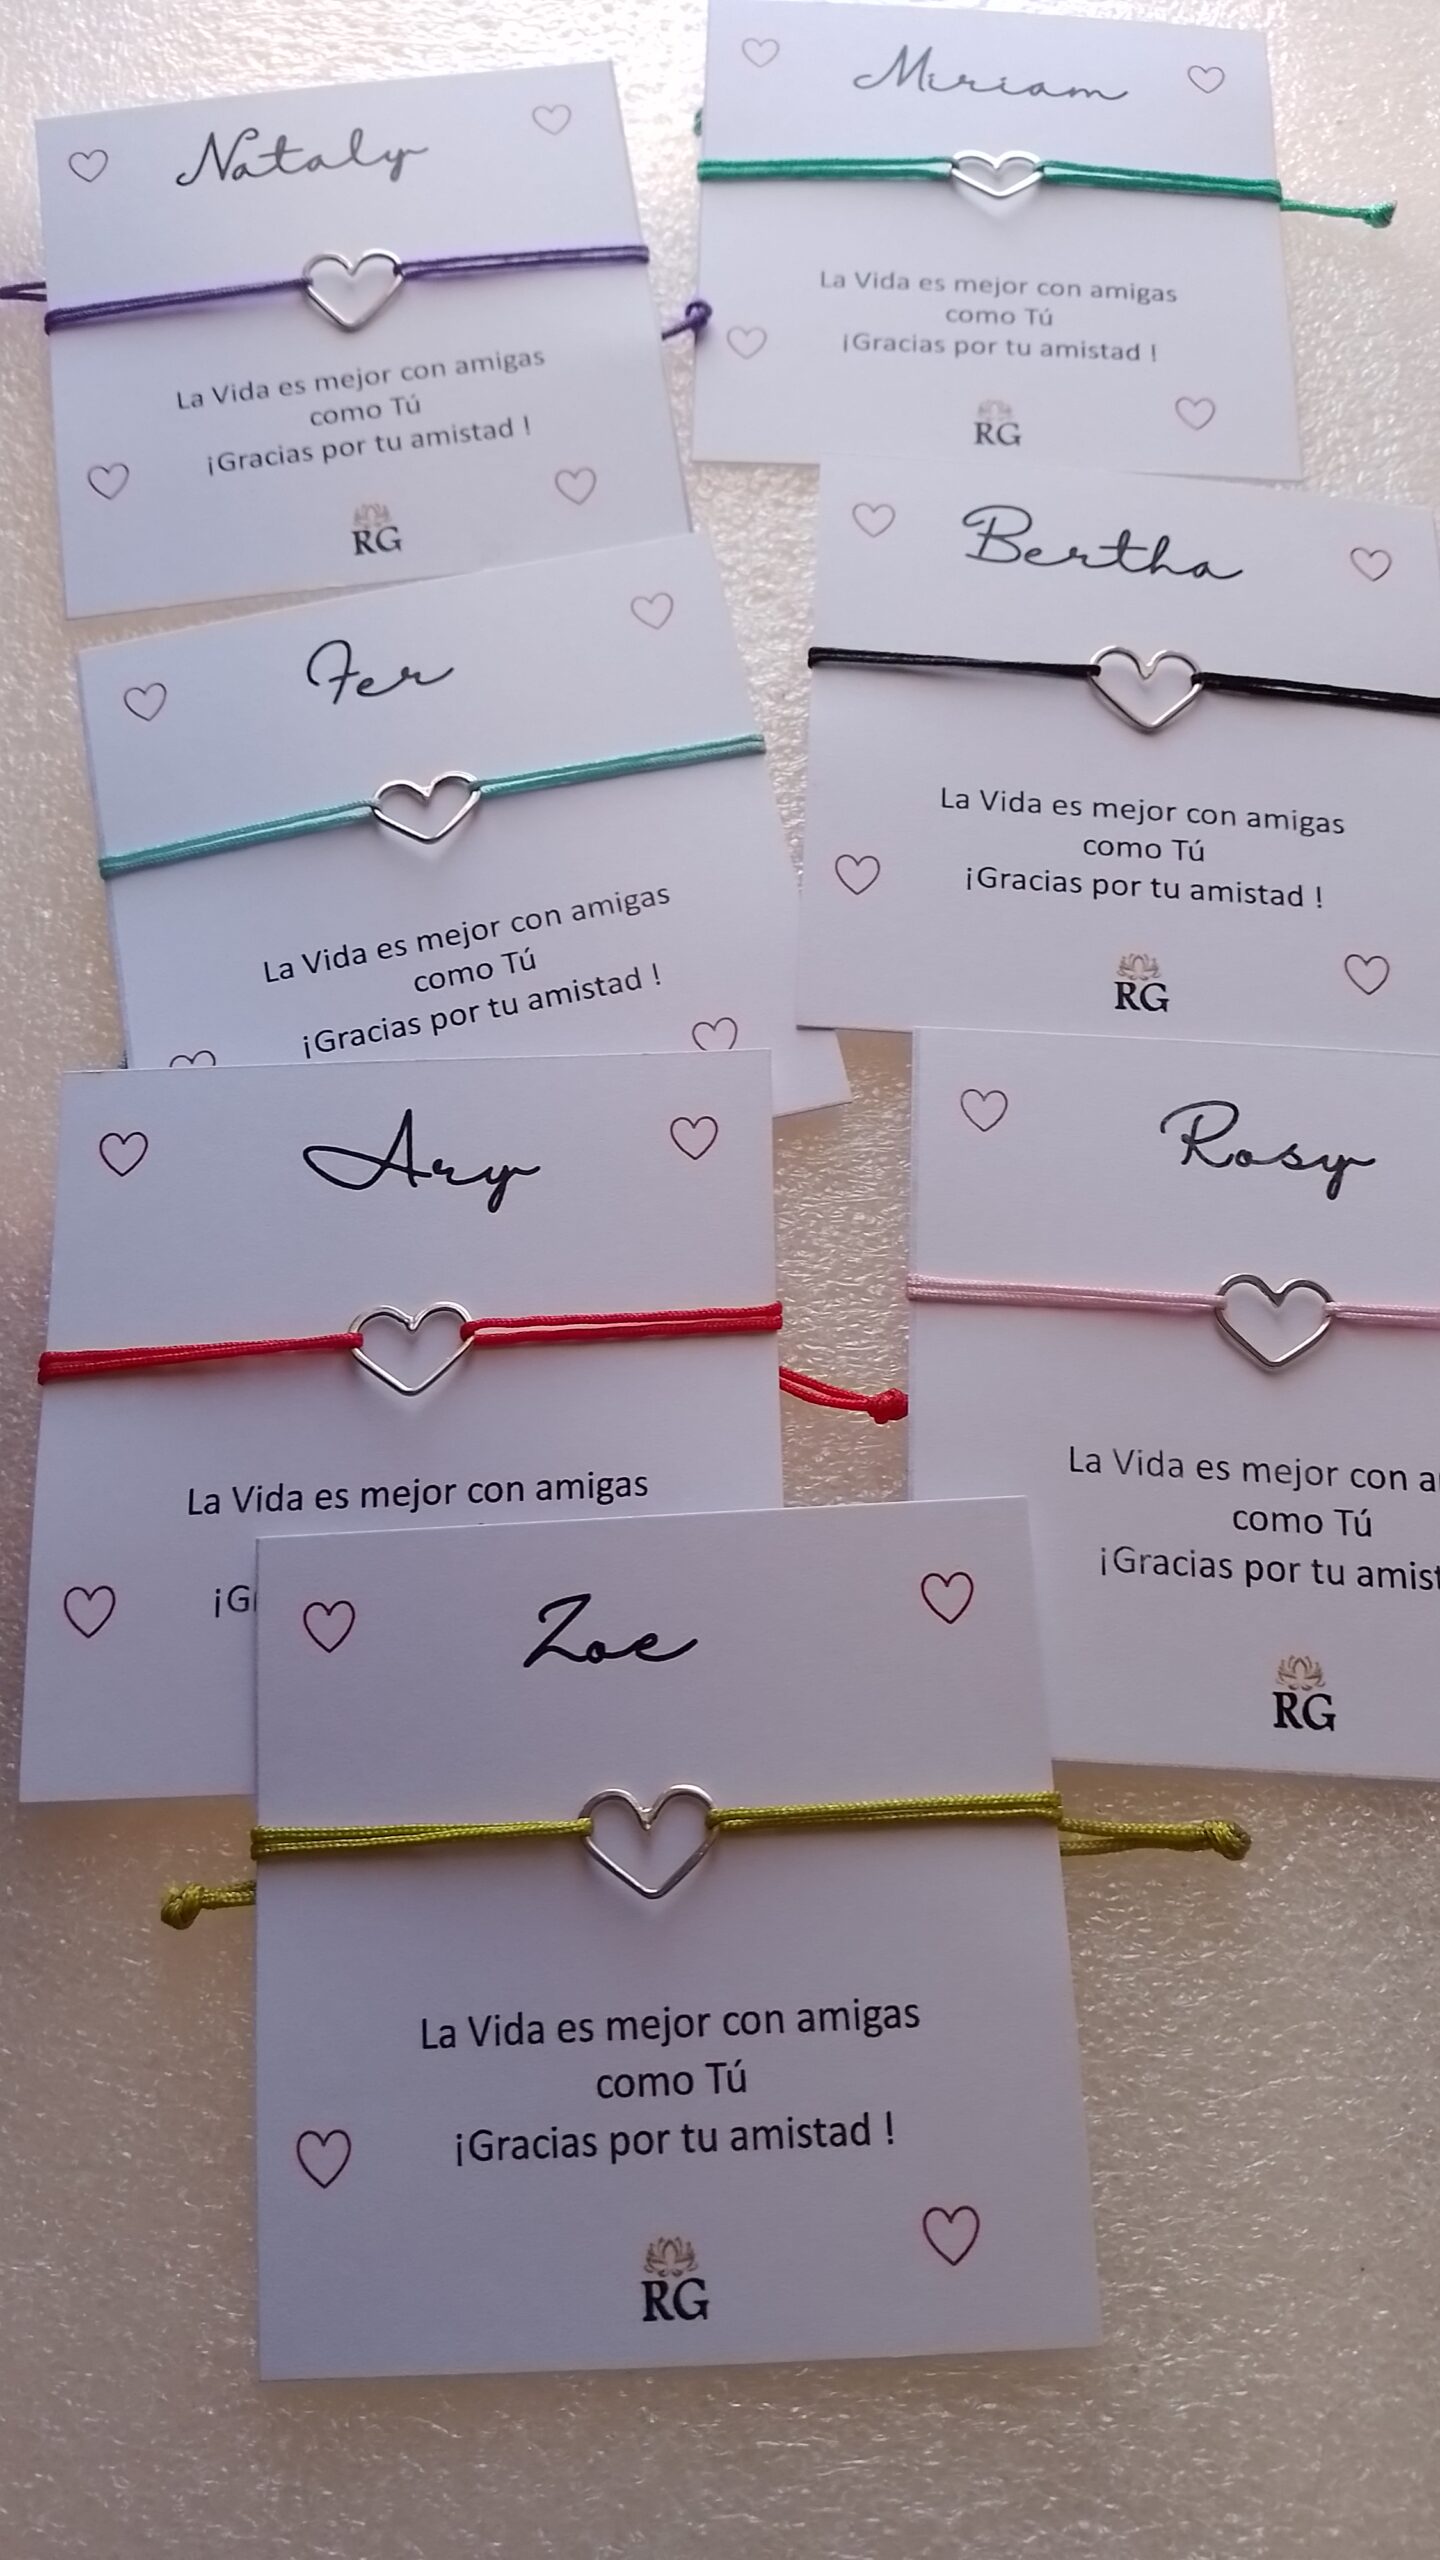 Nataly
La Vida es mejor con amigas
como Tú
¡Gracias por tu amistad !
RG
Miriam
La Vida es mejor con amigas
como Tú
¡Gracias por tu amistad !
RG
Fer
La Vida es mejor con amigas
como Tú
¡Gracias por tu amistad !
Bertha
La Vida es mejor con amigas
como Tú
¡Gracias por tu amistad !
RG
Ary
La Vida es mejor con amigas
Rosy
La Vida es mejor con
como Tú
¡Gracias por tu
RG
Zoe
La Vida es mejor con amigas
como Tú
¡Gracias por tu amistad !
RG